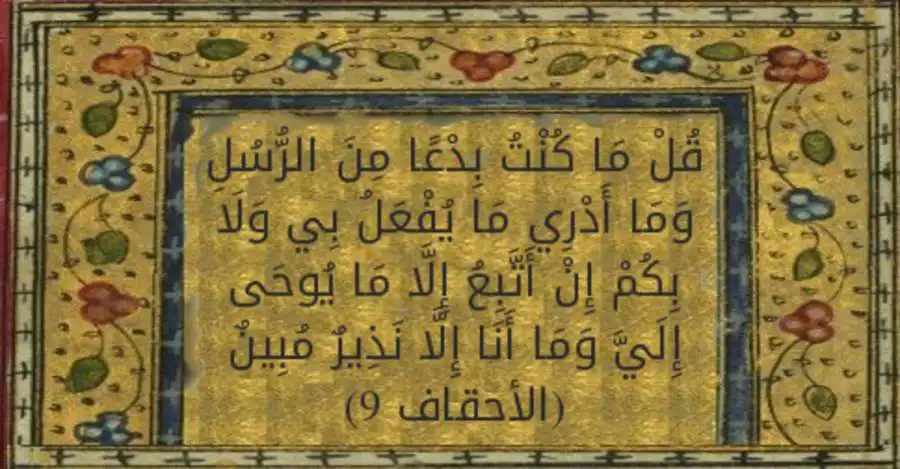 قُلْ مَا كُنْتُ بِدْعًا مِنَ الرُّسُلِ
وَمَا أَدْرِي مَا يُفْعَلُ بِي وَلَا
بِكُمْ إِنْ أَتَّبِعُ إِلَّا مَا يُوحَى
إِلَيَّ وَمَا أَنَا إِلَّا نَذِيرٌ مُبِينٌ
(الأحقاف 9)